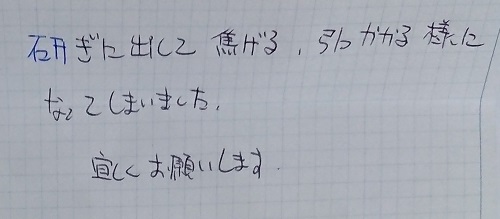 研ぎに出して焦げる、引っかかる様に
なってしまいました。
宜しくお願いします.